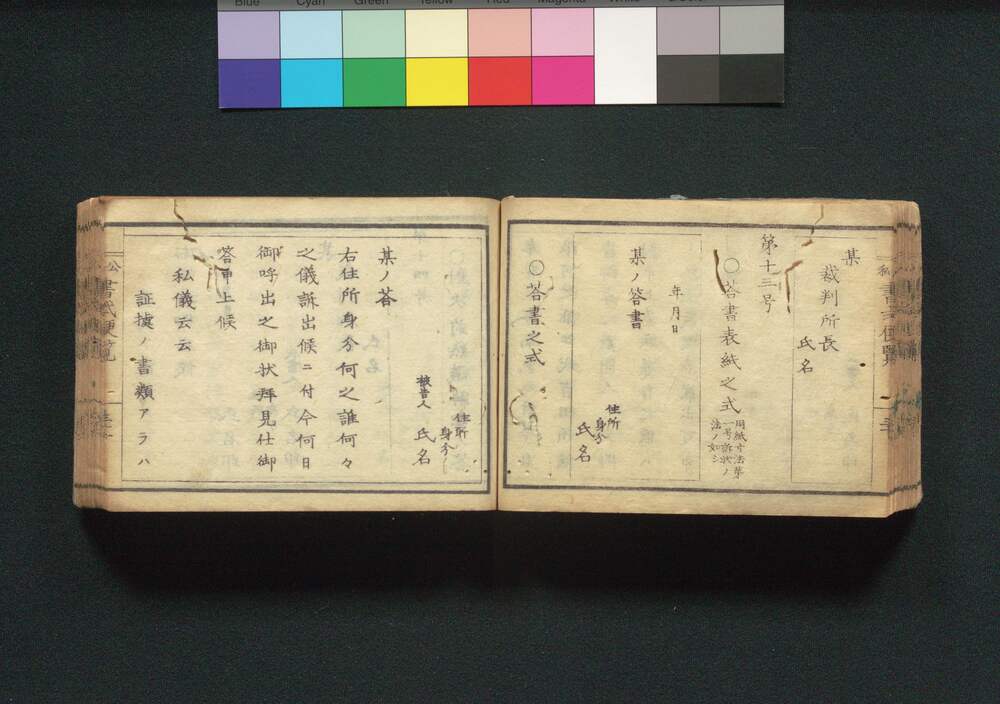 Blue Cyan Green Yellow Red Magenta White
某
裁判所長
氏名
第十三号
○荅書表紙之式
用紙寸法第
一号訴状ノ
法ノ如シ
年月日
某ノ答書
住所
身分
氏名
○荅書之式
住所
身分
被告人 氏名
某ノ荅
右住所身分何之誰何々
之儀訴出候ニ付今何日
御呼出之御状拜見仕御
答申上候
私儀云云
証拠ノ書類アラハ
公
書式便覧